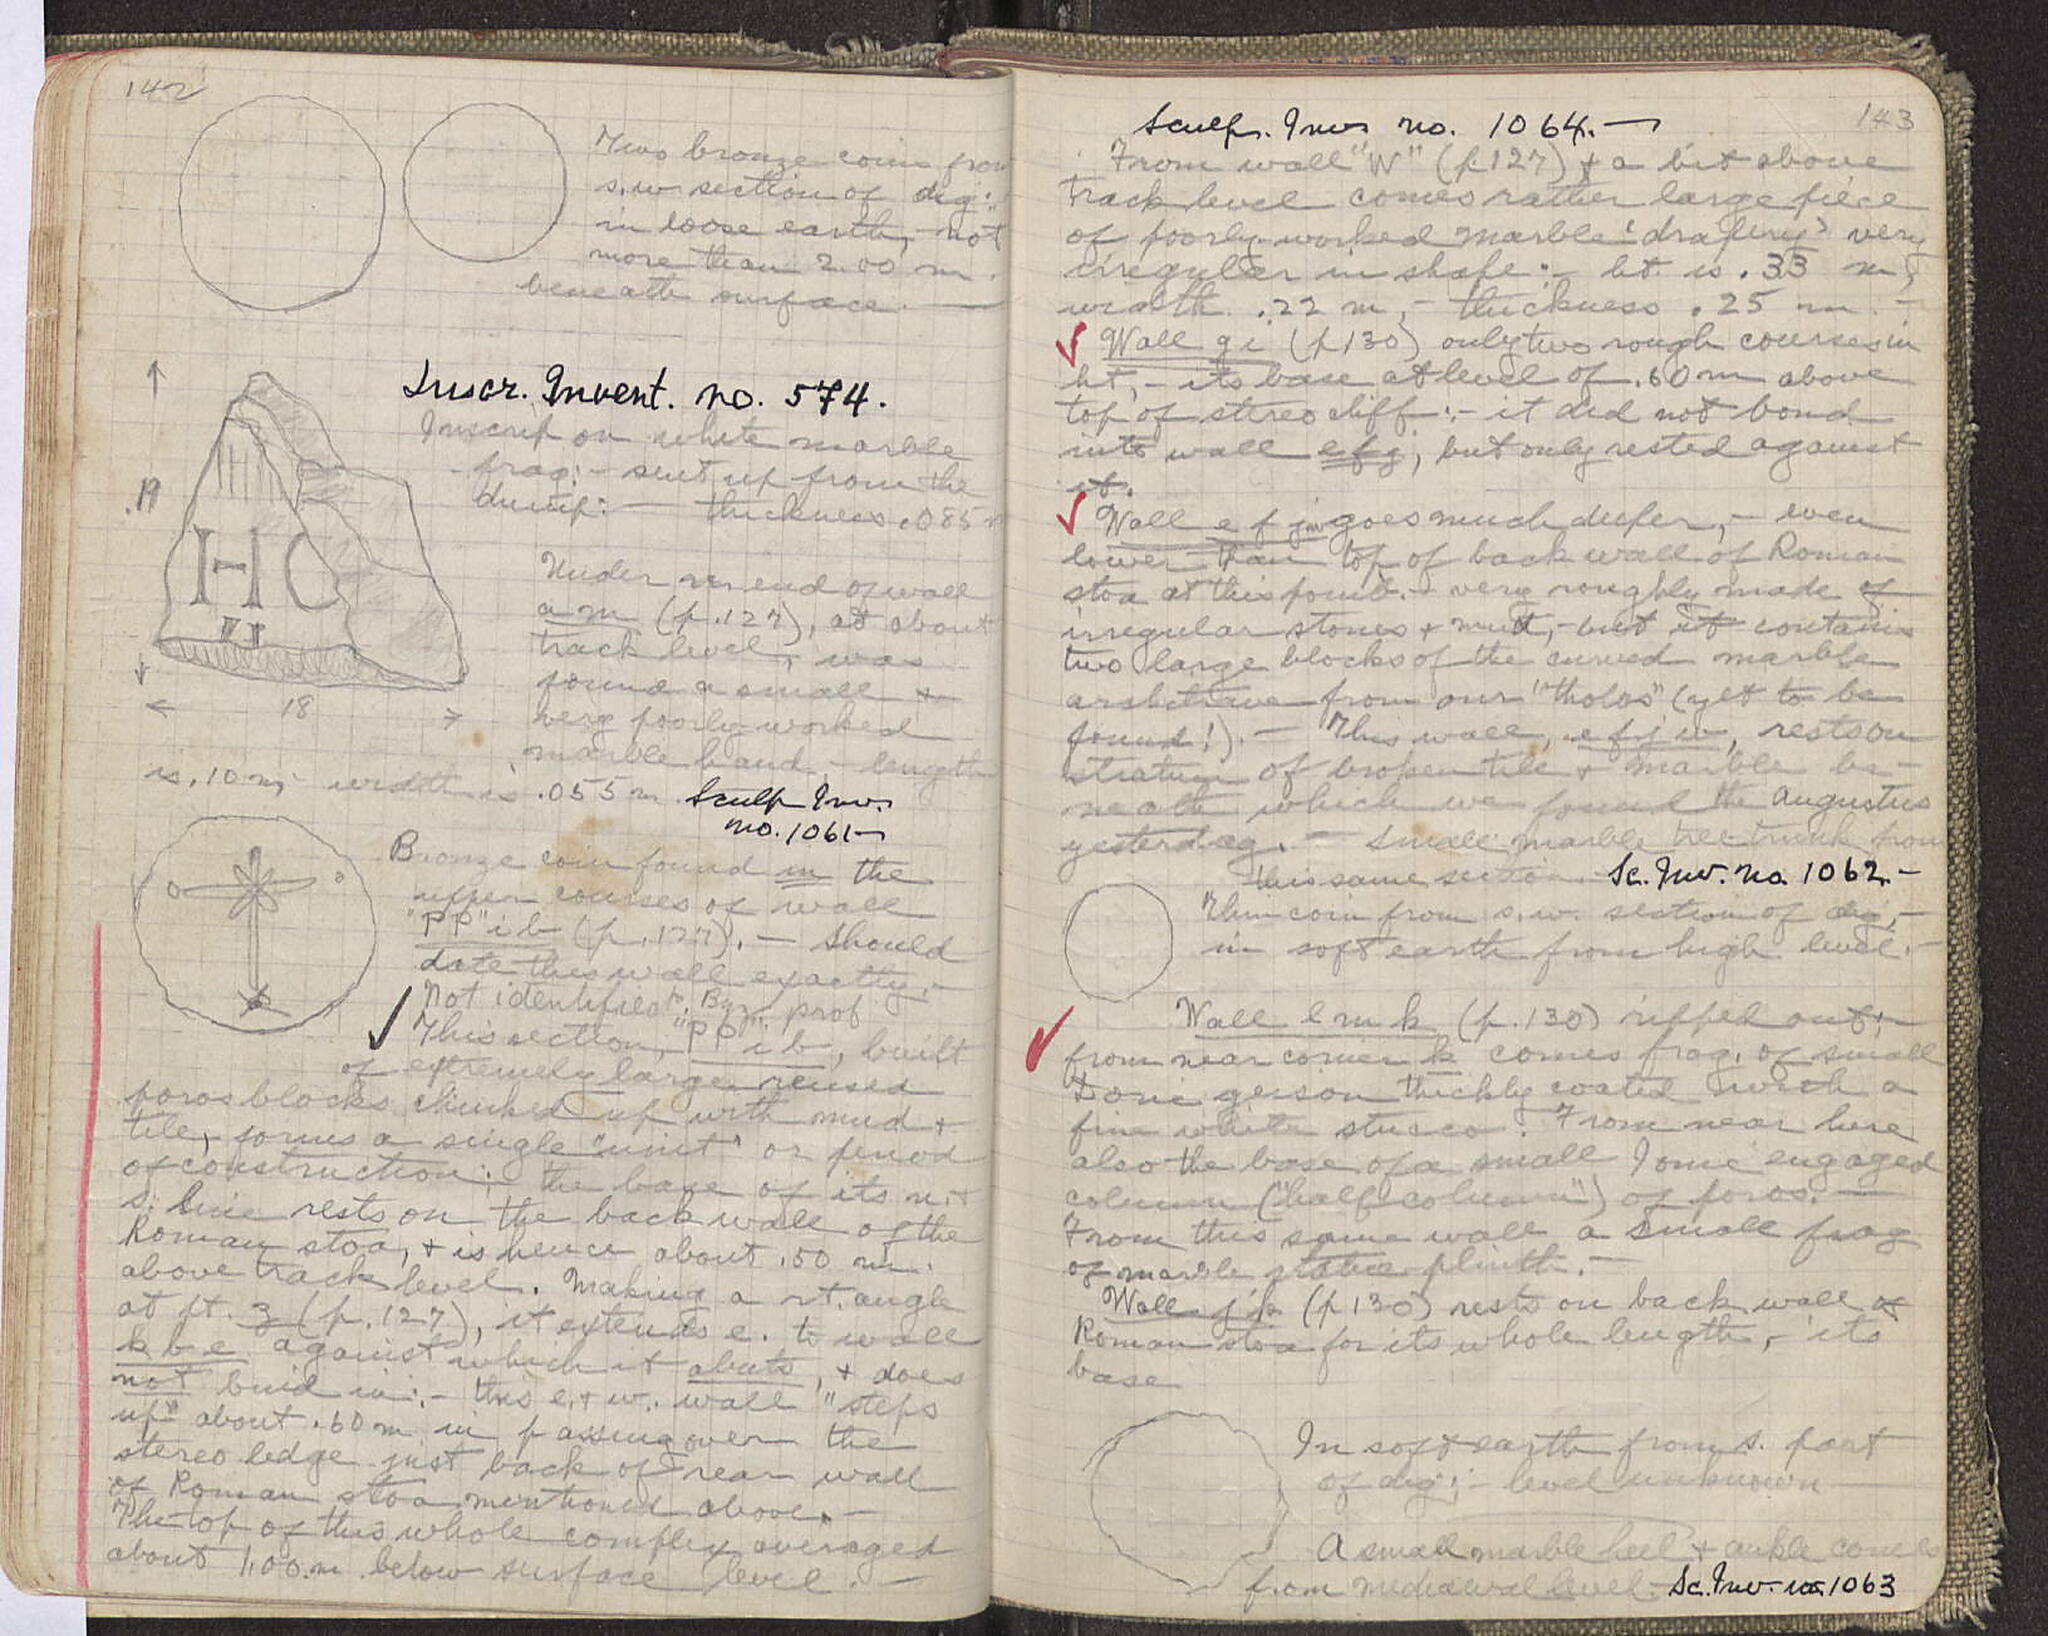 142
Two bronze coins from
s.w. section of dig:-
in loose earth, - not
more than 2.00 m.
beneath surface. —
Inscr. Invent. no. 574.
Inscrip on white marble
frag:- sent up from the
dump: — thickness .085 m
.19
HC
18
Under n. end of wall
a m (p.127), at about
track level, was
found a small +
very poorly worked
marble hand, - length
is .10 m, width is .055 m. Sculp Inv.
no. 1061—
Bronze coin found in the
upper courses of wall
"PP" i b (p.127). — should
date this wall exactly. -
Not identified. Byz. prof
This section, "PP" i b, built
of extremely large reused
poros blocks chinked up with mud +
tile, forms a single "unit" or period
of construction: the base of its n. +
s. line rests on the back wall of the
Roman stoa, + is hence about .50 m.
above track level. Making a rt. angle
at pt. z (p.127), it extends e. to wall
k b e against which it abuts, + does
not bind in:- this e. + w. wall "steps
up" about .60 m in passing over the
stereo ledge just back of rear wall
of Roman stoa mentioned above. —
The top of this whole complex averaged
about 1.00 m below surface level. —
143
Sculp. Inv. no. 1064. —
From wall "W" (p.127) + a bit above
track level comes rather large piece
of poorly worked marble 'drapery' very
irregular in shape:- ht. is .33 m,
width .22 m, - thickness .25 m. -
Wall g i (p.130) only two rough courses in
ht, - its base at level of .60 m above
top of stereo cliff:- it did not bond
into wall e f g, but only rested against
it.
Wall e f j w goes much deeper, - even
lower than top of back wall of Roman
stoa at this point. - very roughly made of
irregular stones + mud, - but it contains
two large blocks of the curved marble
architrave from our "tholos" (yet to be
found!). — This wall, e f j w, rests on
stratum of broken tile + marble be-
neath which we found the Augustus
yesterday. — Small marble tree trunk from
this same section. - Sc. Inv. no. 1062. -
Thin coin from s.w. section of dig, -
in soft earth from high level. -
Wall l m k (p.130) ripped out:-
from near corner k comes frag. of small
Doric geison thickly coated with a
fine white stucco. From near here
also the base of a small Ionic engaged
column ("half column") of poros. —
From this same wall a small frag
of marble statue plinth. —
Wall j k (p.130) rests on back wall of
Roman stoa for its whole length, its
base
In soft earth from s. part
of dig:- level unknown —
A small marble heel + ankle comes
from mediaeval level. - Sc. Inv. no. 1063